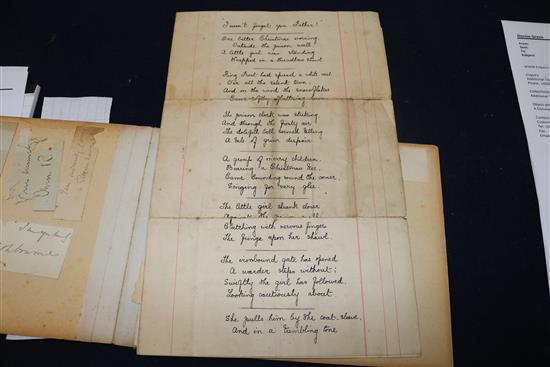 "I won't forget you Father!"
One bitter Christmas morning,
Outside the prison wall
A little girl was standing
Wrapped in a threadbare shawl
King Frost had spread a white veil
O'er all the silent town;
And on the wind the snowflakes
Came softly fluttering down
The prison clock was striking,
And through the frosty air
The doleful bell seemed telling
A tale of grim despair
A group of merry children,
Bearing a Christmas tree,
Came bounding round the corner
Singing for very glee
The little girl shrank closer
Against the prison wall
Clutching with nervous fingers
The fringe upon her shawl.
The ironbound gate has opened
A warder steps without;
Swiftly the girl has followed,
Looking cautiously about
She pulls him by the coat-sleeve,
And in a trembling tone
Denise Green
From:
Sent:
To:
Subject: